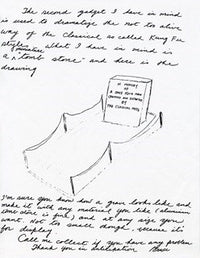 The second gadget I have in mind
is used to dramatize the not too alive
way of the classical so called Kung Fu
styles. What I have in mind is
(miniature)
a "tomb stone" and here is the
drawing
IN MEMORY
OF
A ONCE FLUID MAN
CRAMMED AND DISTORTED
BY
THE CLASSICAL MESS
I'm sure you know how a grave looks like and
make it with any material you like (aluminum
tomb stone is fine) and at any size you
want. Not too small though, because it's
for display.
Call me collect if you have any problem
Thank you in anticipation Bruce